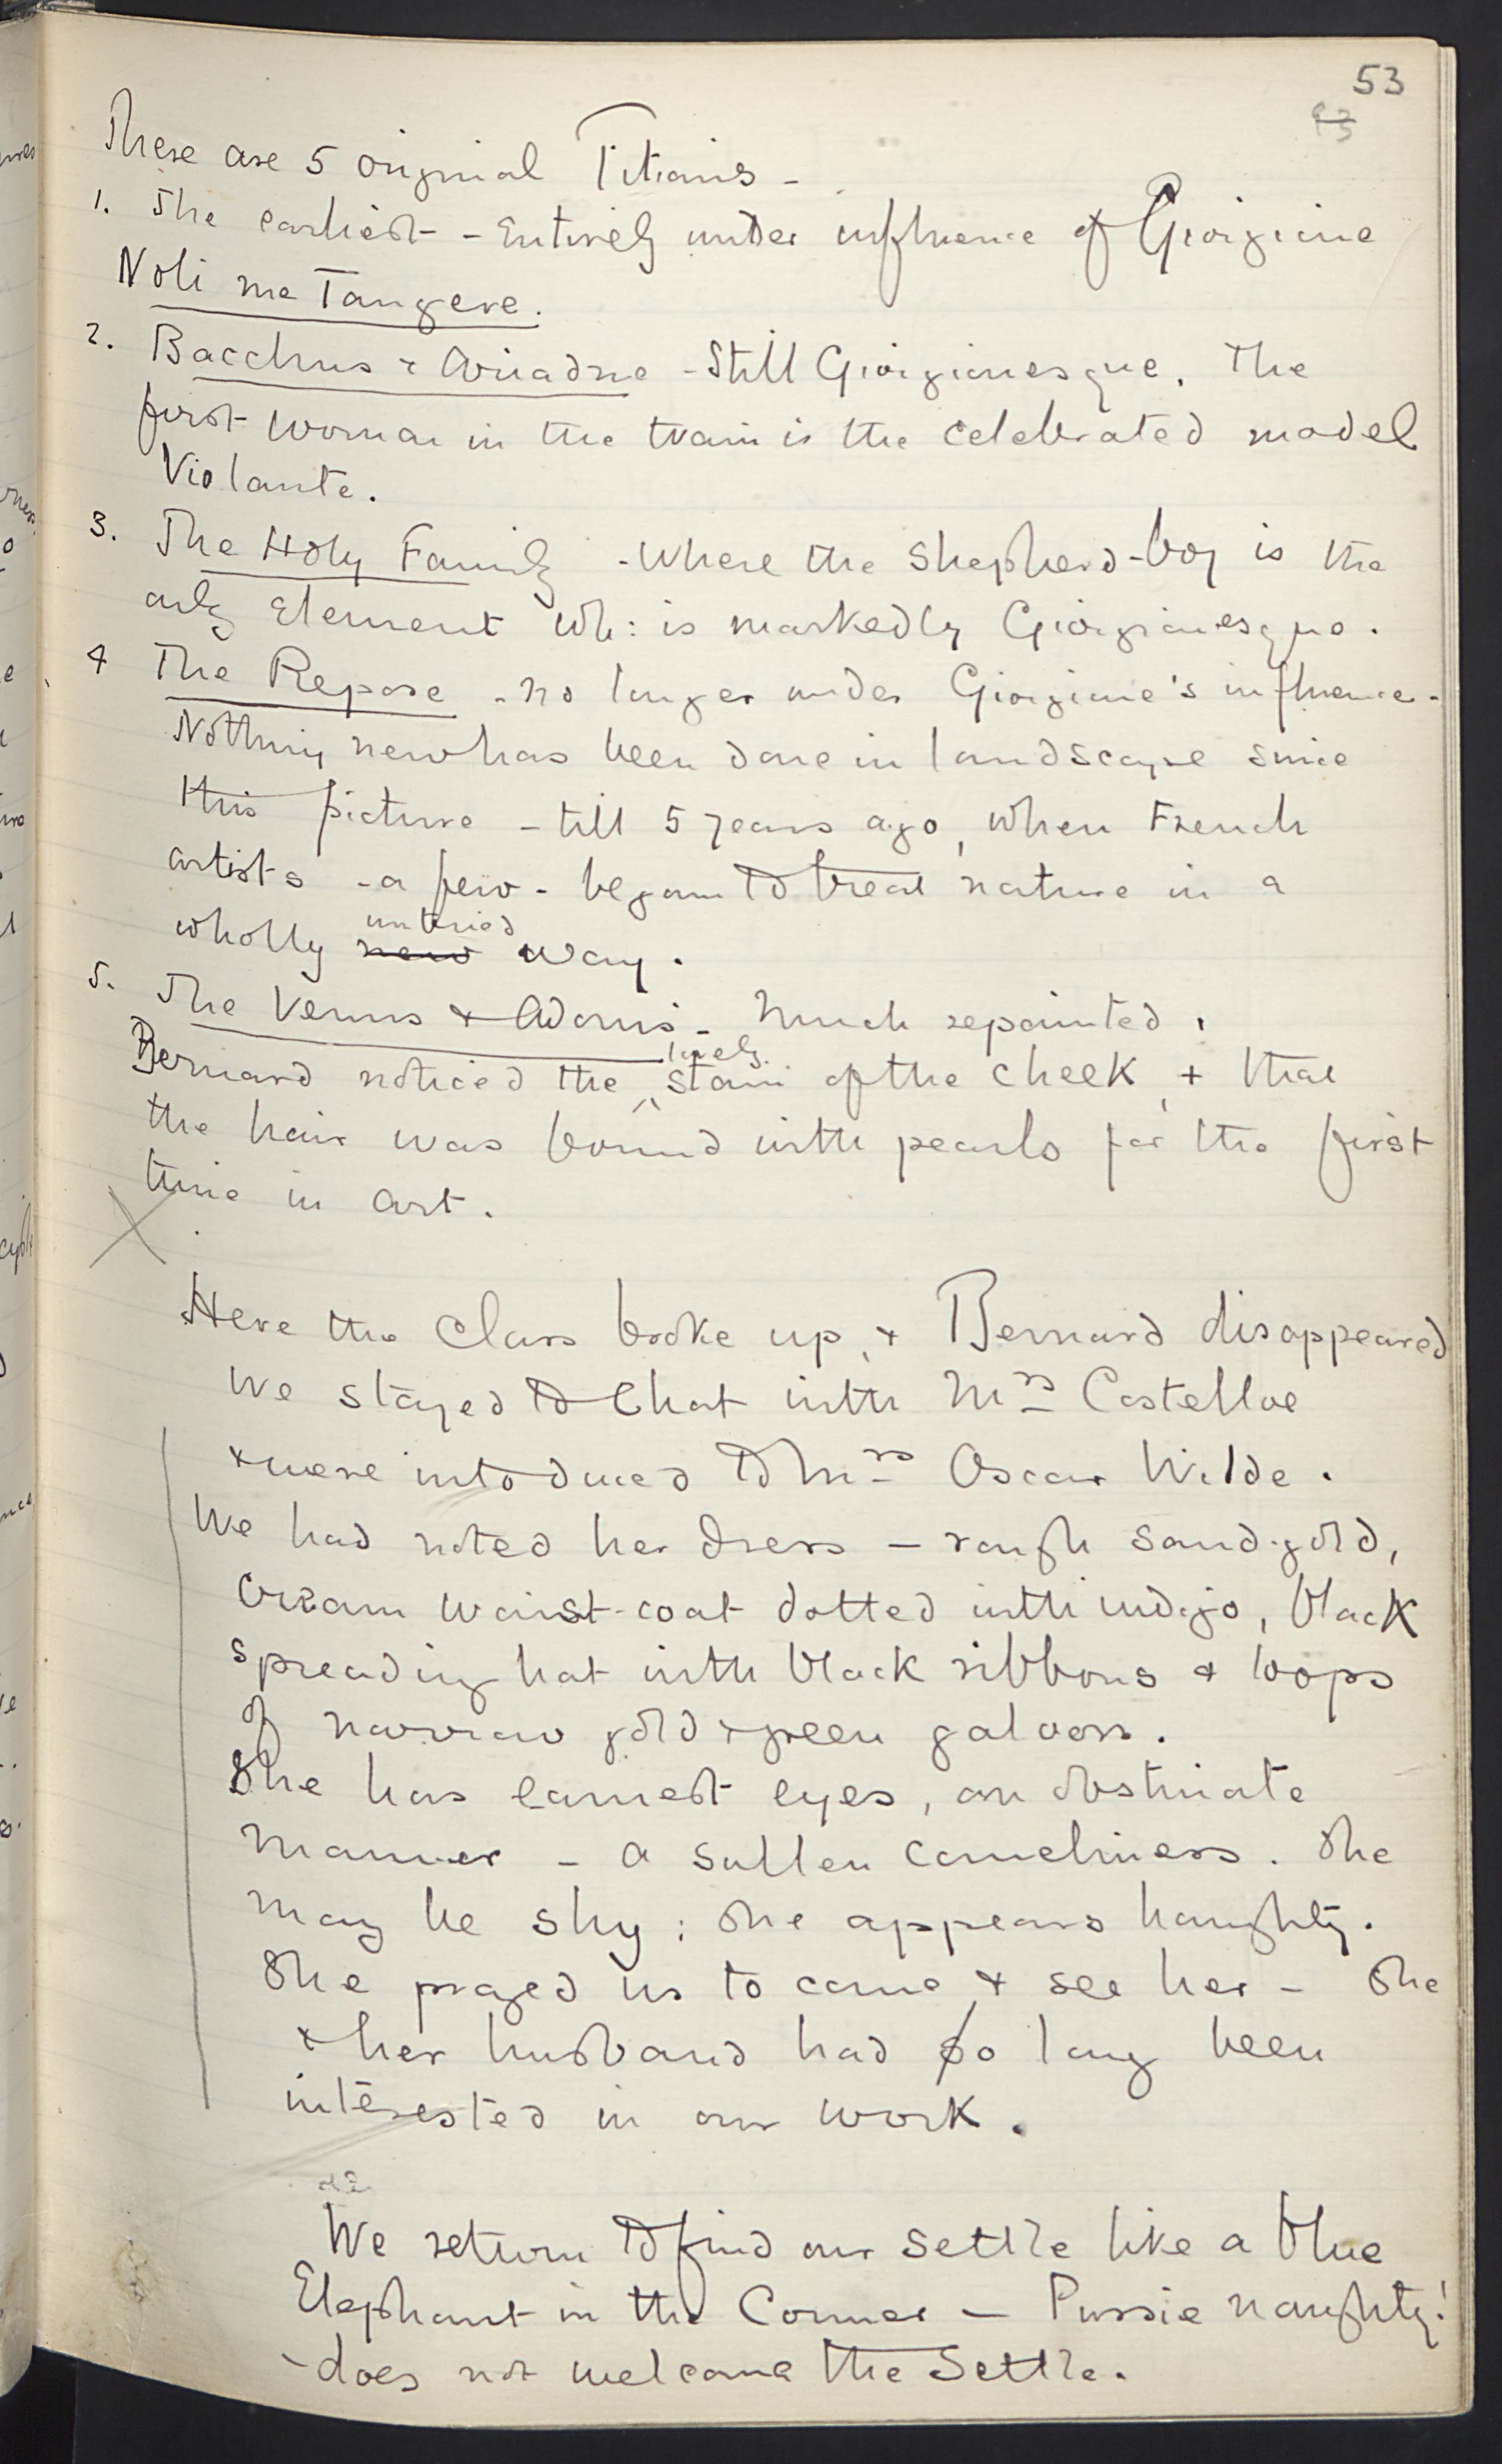 53
These are 5 original Titians -
1. The earliest - Entirely under influence of Giorgione
Noli me Tangere.
2. Bacchus & Ariadne - Still Giorgionesque. The
first woman in the train is the celebrated model
Violante.
3. The Holy Family - Where the Shepherd-boy is the
only Element wh: is markedly Giorgionesque.
4 The Repose - no longer under Giorgione's influence -
Nothing new has been done in landscape since
this picture - till 5 years ago, when French
artists - a few - began to treat nature in a
untried
wholly new way.
5. The Venus & Adonis - Much repainted.
lovely
Bernard noticed the stain of the cheek, + that
the hair was bound with pearls for the first
time in art.
Here the Class broke up, & Bernard disappeared
We stayed to Chat with Mrs Costelloe
& were intoduced to Mrs Oscar Wilde.
We had noted her dress — rough sand-gold,
Cream waist-coat dotted with indigo, black
spreading hat with black ribbons & loops
of narrow gold & green galoon.
She has earnest eyes, an obstinate
manner - a sullen comeliness. She
may be shy; She appears haughty.
She prayed us to come & see her - She
& her husband had so long been
interested in our work.
We return to find our settle like a blue
Elephant in the Corner — Pussie naughty!
- does not welcome the Settle.